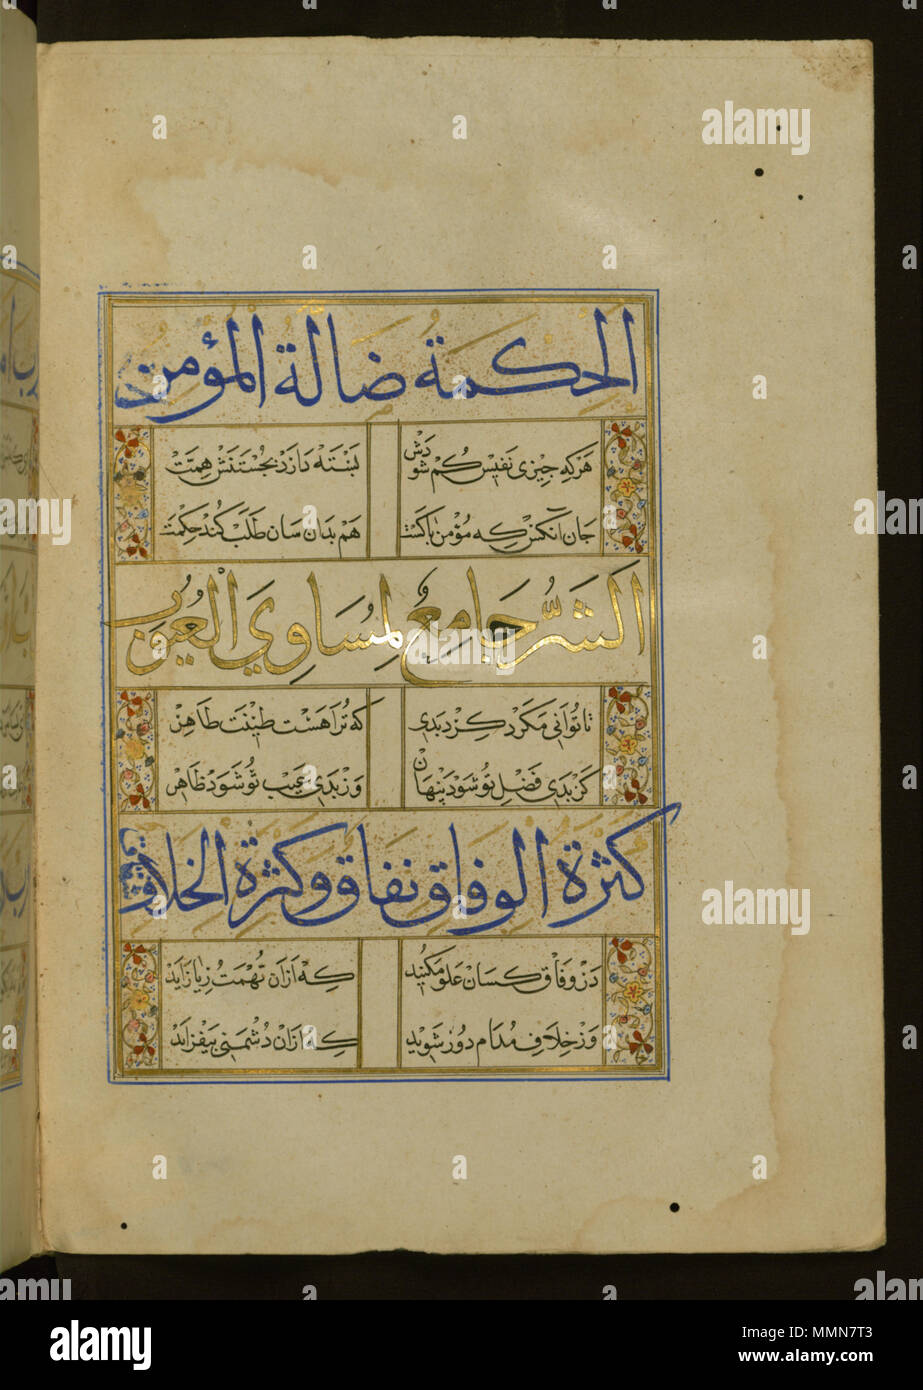 الحكمة ضالة المؤمن
هر که چیزی نفیس گم شودش
بسته دارد بجستنش همت
جان آنکس که مؤمن پاکست
هم بدان سان طلب کند حکمت
الشر جامع لمساوي العيوب
تا توانی مگرد گرد بدی
که ترا هست طینت طاهر
کز بدی فضل تو شود پنهان
وز بدی عیب تو شود ظاهر
كثرة الوفاق نفاق وكثرة الخلاف شقاق
در وفاق کسان غلو مکنید
که ازان تهمت ریا زاید
وز خلاف مدام دور شوید
که ازان دشمنی بیفزاید
alamy
Image ID: MMN7T3
www.alamy.com